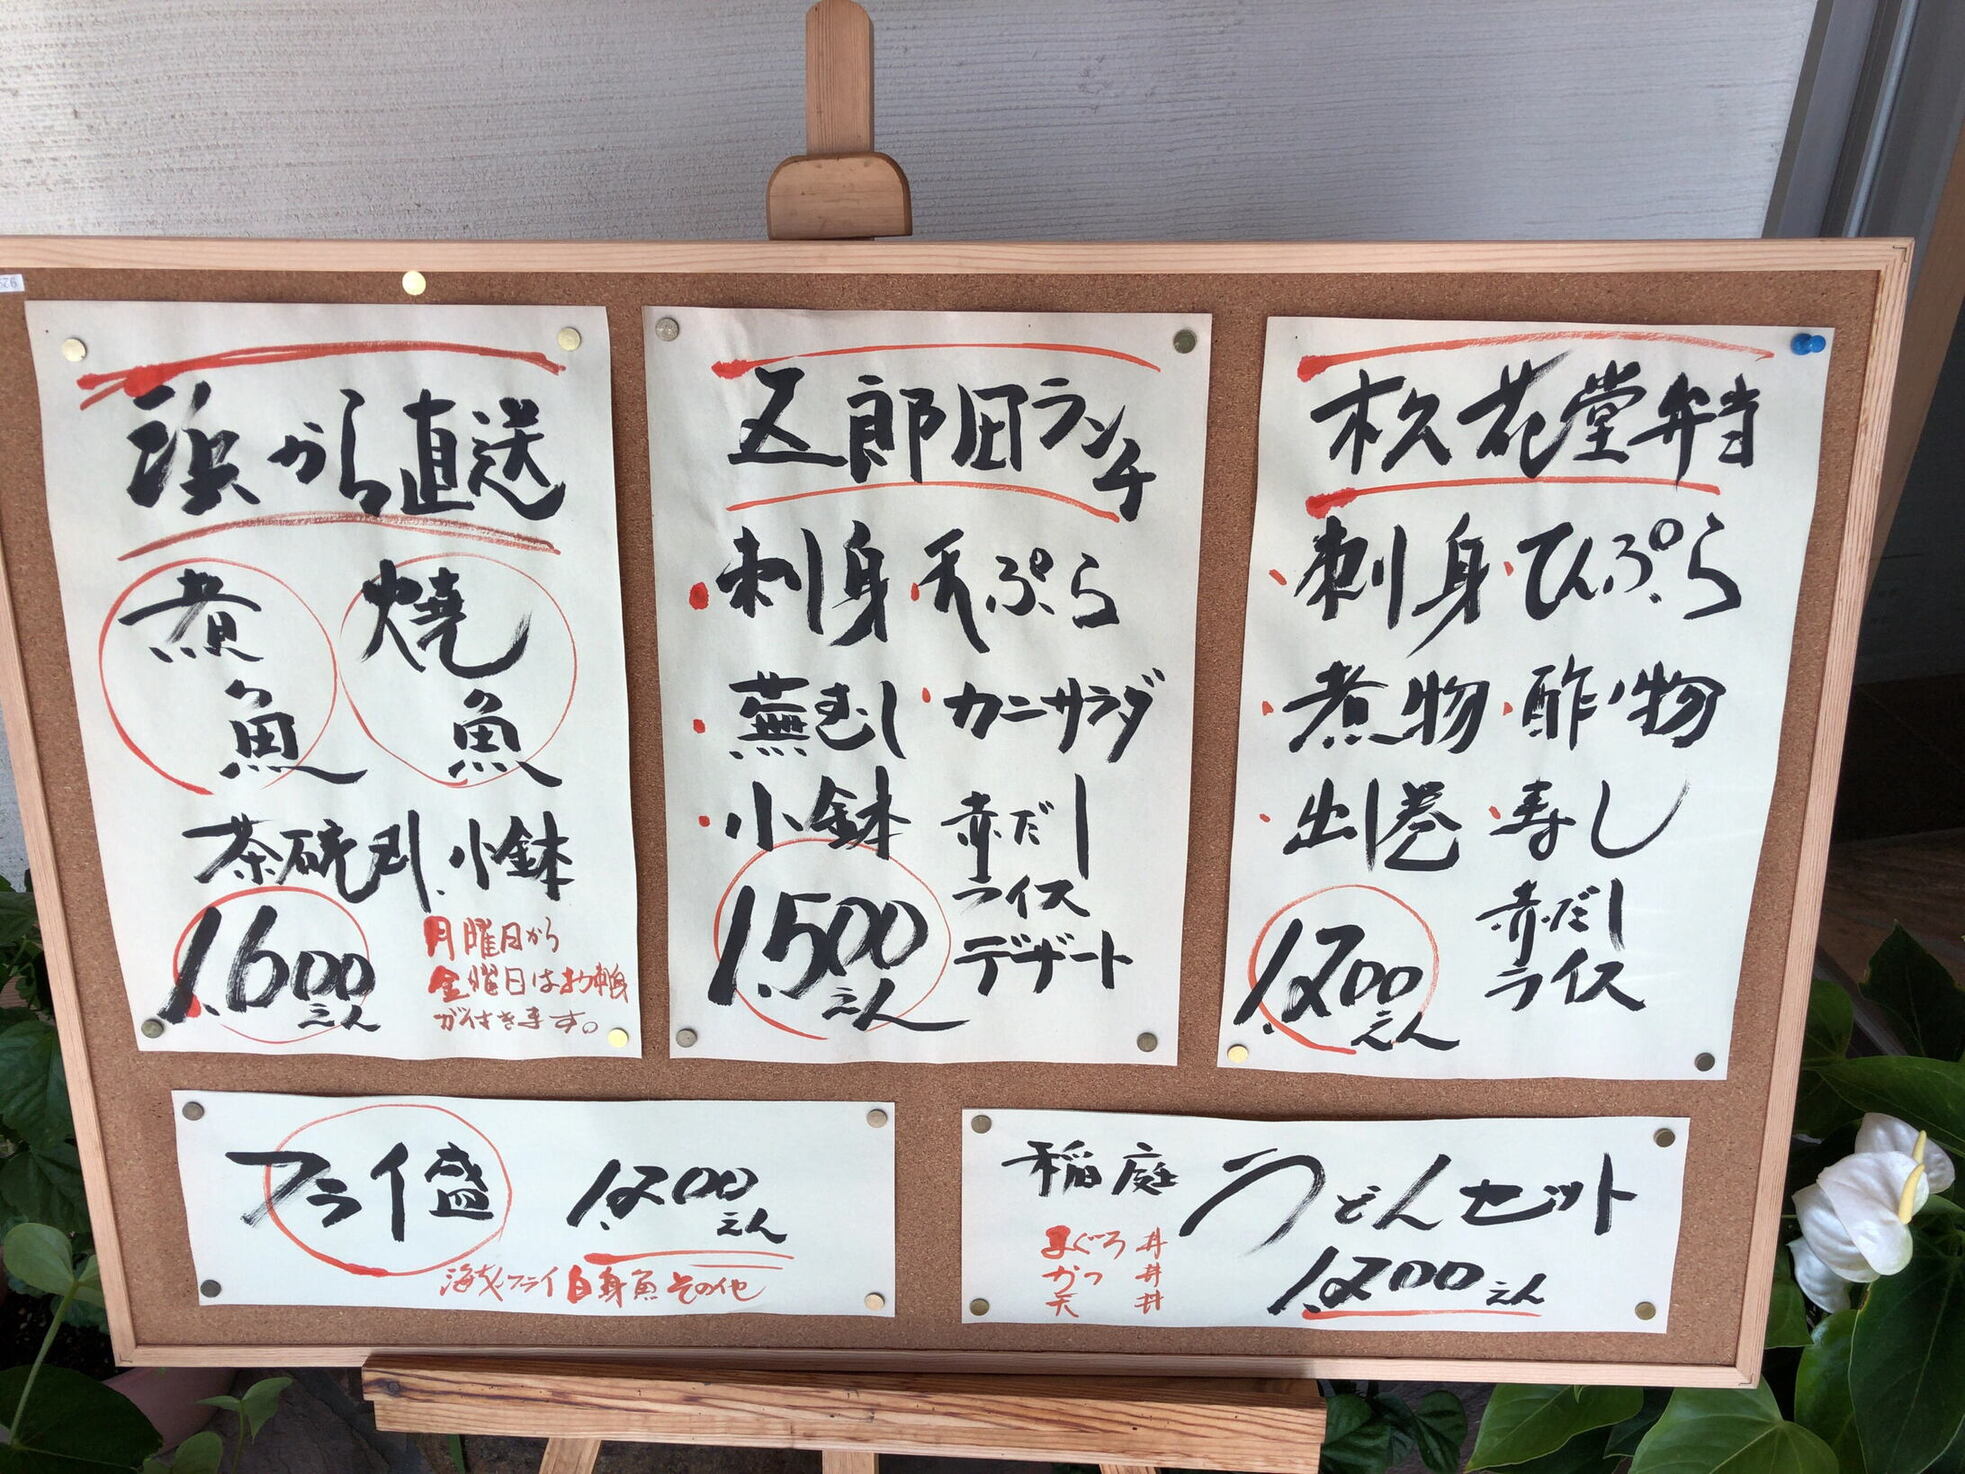 浜から直送
煮魚 焼魚
茶碗むし.小鉢
1.600えん
月曜日から
金曜日はお刺身
が付きます。
五郎田ランチ
・刺身・天ぷら
・蕪むし・カニサラダ
・小鉢 赤だし
ライス
デザート
1.500えん
松花堂弁当
・刺身・天ぷら
・煮物・酢の物
・出し巻・寿し
赤だし
ライス
1.200えん
フライ盛 1.200えん
海老フライ 白身魚 その他
稲庭うどんセット
まぐろ丼
かつ丼
天丼
1.200えん